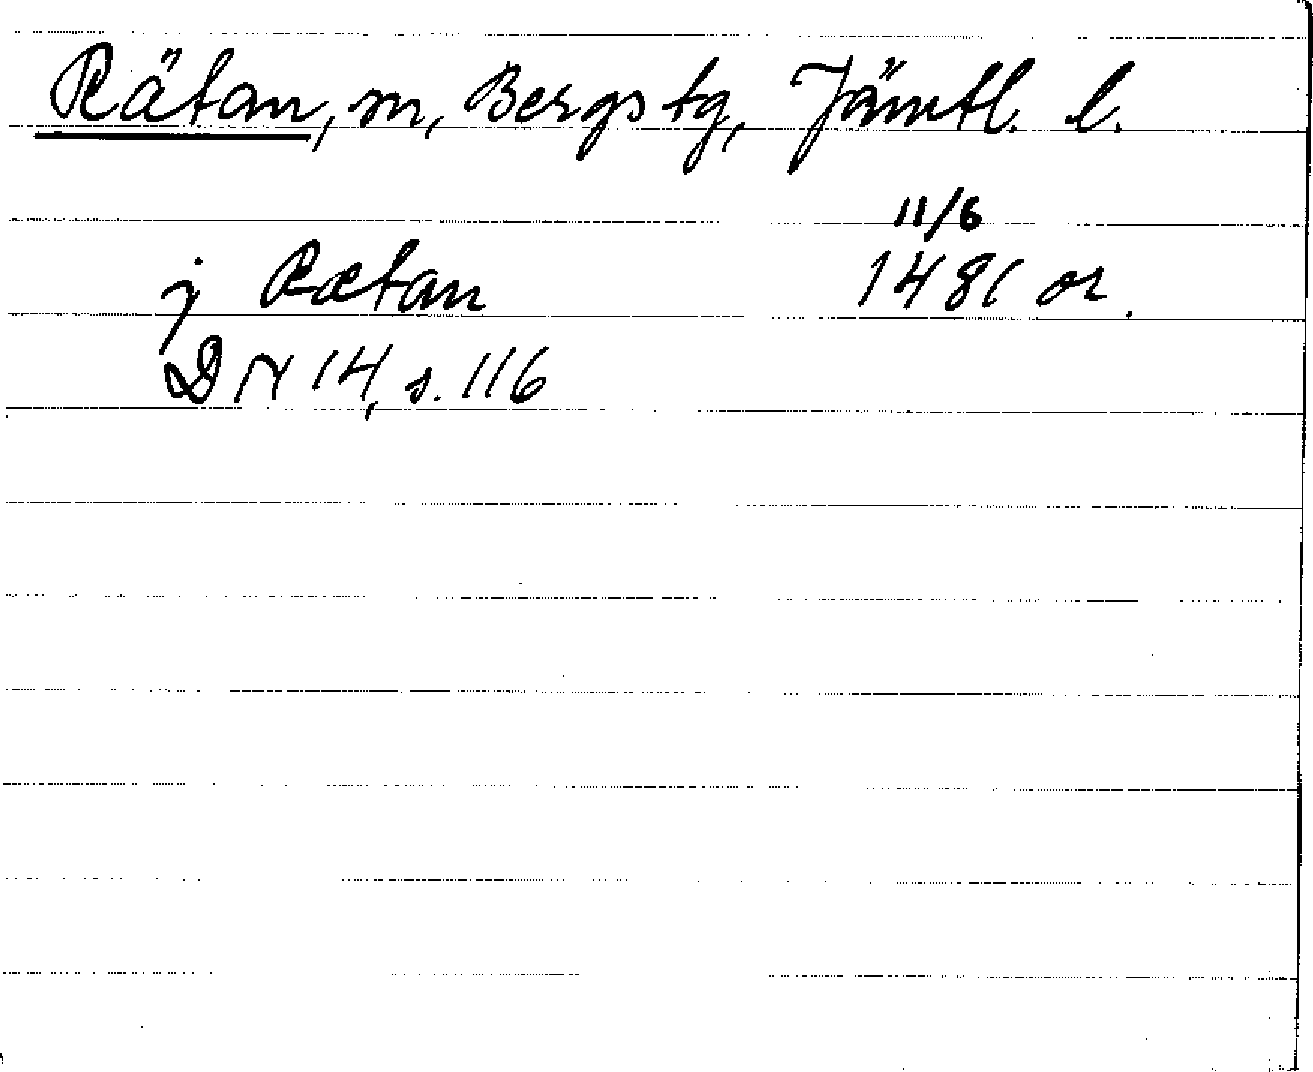 Rätan, sn, Bergs tg, Jämtl. l.
11/6
j Rætan 1481 or.
DN 14, s. 116